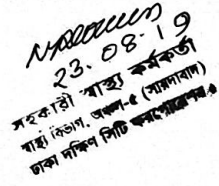 23.08.19
সহকারী স্বাস্থ্য কর্মকর্তা
স্বাস্থ্য বিভাগ, অঞ্চল-৫ (সায়দাবাদ)
ঢাকা দক্ষিণ সিটি কর্পোরেশন